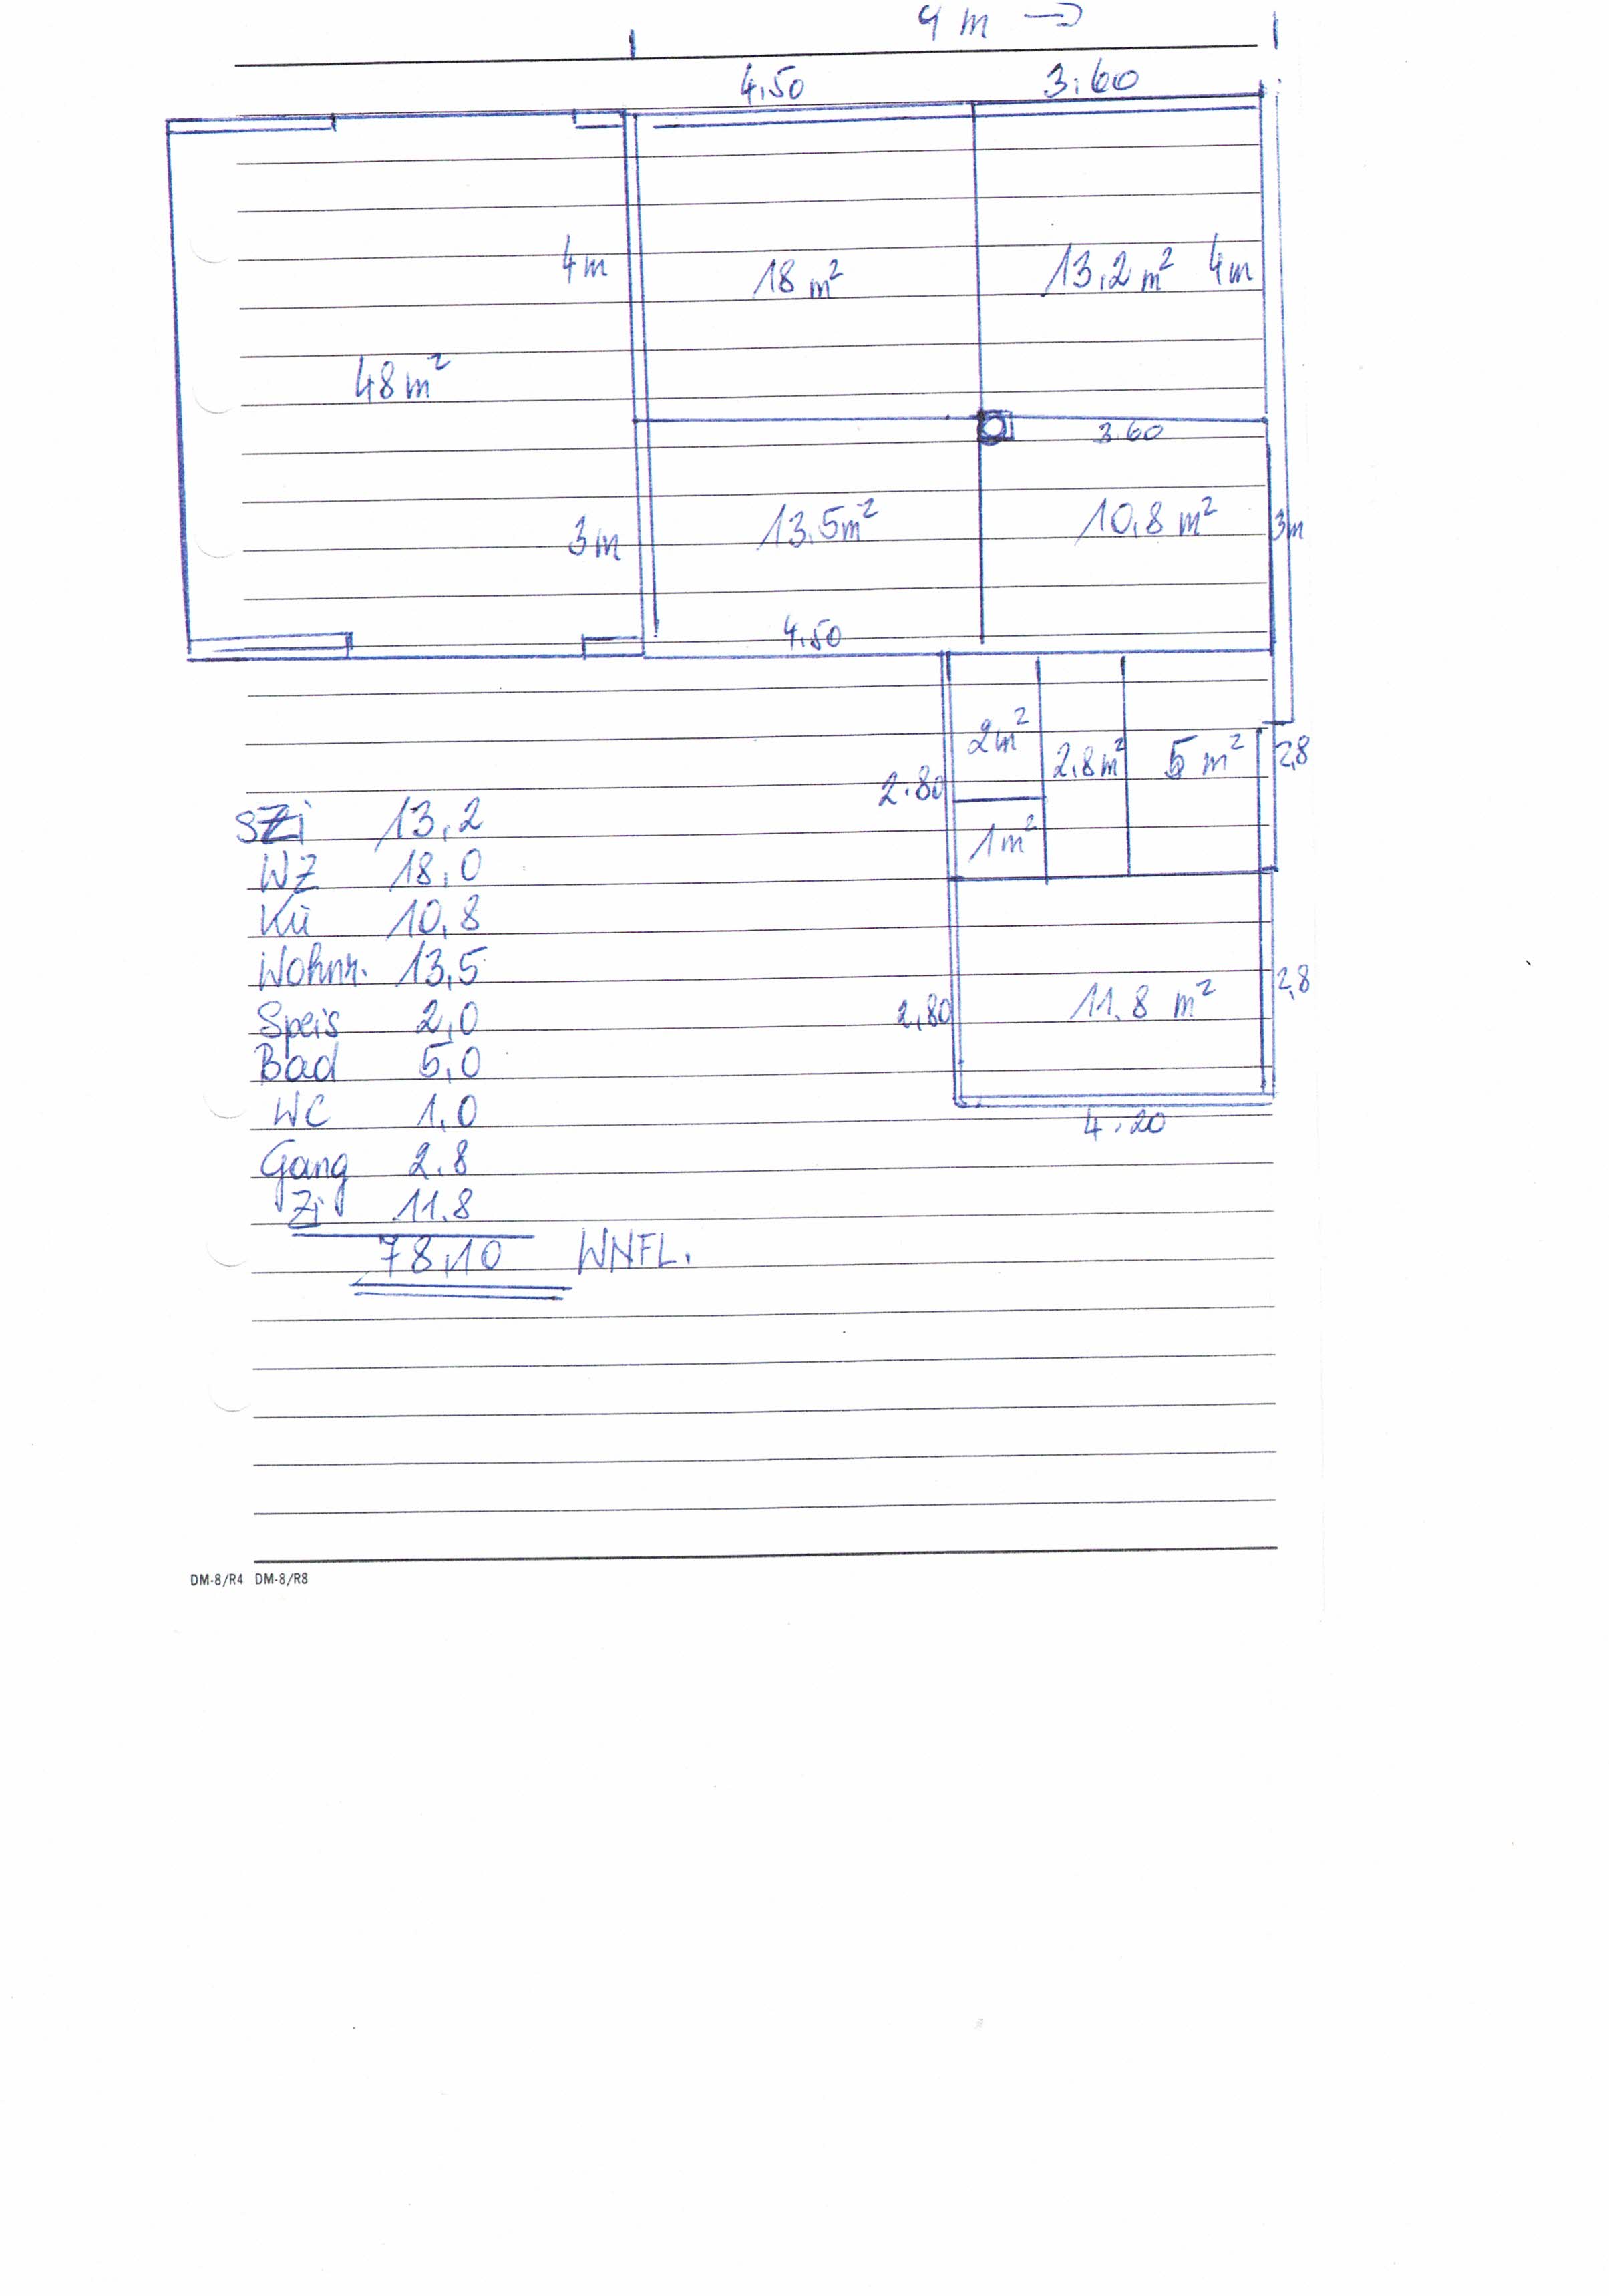 9 m →
4,50 3,60
4m 18 m² 13,2 m² 4m
48 m²
3.60
3m 13.5m² 10,8 m² 3m
4.50
2m² 2,8m² 5 m² 2,8
2.80
1m²
SZi 13,2
WZ 18,0
Kü 10,8
Wohnr. 13,5
2,80 11.8 m² 2,8
Speis 2,0
Bad 5,0
WC 1,0
4.20
Gang 2.8
Zi 11.8
78,10 WNFL.
DM-8/R4 DM-8/R8